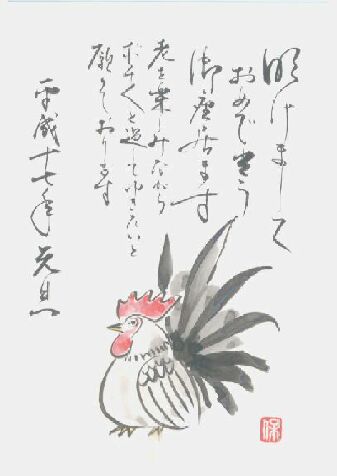 明けまして
おめでとう
御座居ます
老を楽しみながら
ボチ〱と過してゆきたいと
願っております
平成十七年 元旦
保